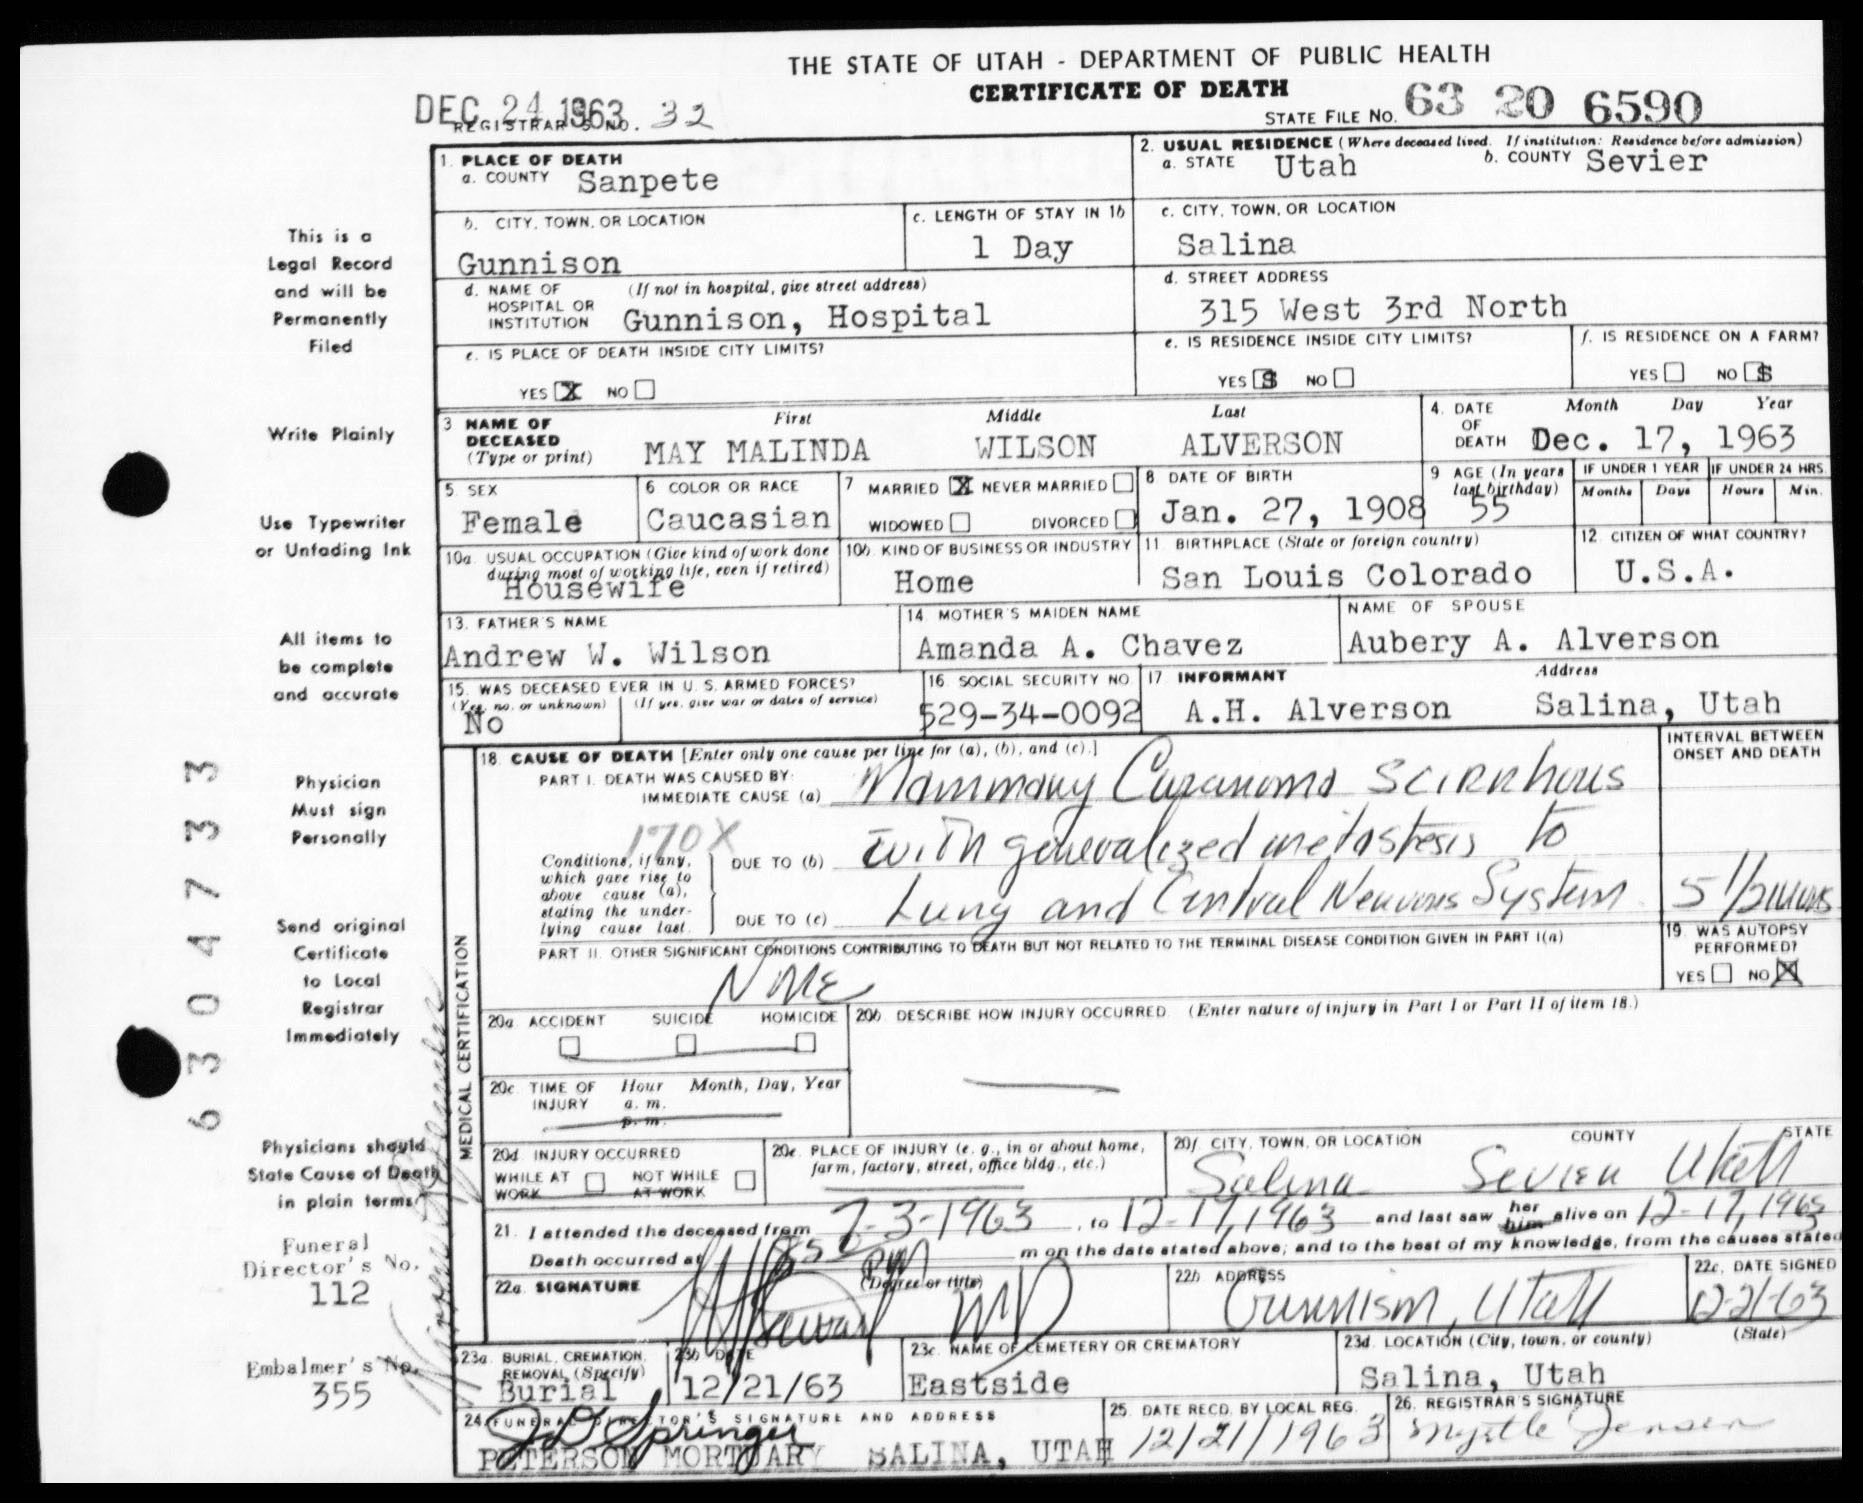 THE STATE OF UTAH - DEPARTMENT OF PUBLIC HEALTH
CERTIFICATE OF DEATH
DEC 24 1963
REGISTRAR'S NO. 32
STATE FILE NO. 63 20 6590
This is a
Legal Record
and will be
Permanently
Filed
Write Plainly
Use Typewriter
or Unfading Ink
All items to
be complete
and accurate
Physician
Must sign
Personally
Send original
Certificate
to Local
Registrar
Immediately
Physicians should
State Cause of Death
in plain terms
Funeral
Director's No.
112
Embalmer's No.
355
63047333
1. PLACE OF DEATH
a. COUNTY Sanpete
2. USUAL RESIDENCE (Where deceased lived. If institution: Residence before admission)
a. STATE Utah b. COUNTY Sevier
b. CITY, TOWN, OR LOCATION
Gunnison
c. LENGTH OF STAY IN 1b
1 Day
c. CITY, TOWN, OR LOCATION
Salina
d. NAME OF HOSPITAL OR INSTITUTION (If not in hospital, give street address)
Gunnison, Hospital
d. STREET ADDRESS
315 West 3rd North
e. IS PLACE OF DEATH INSIDE CITY LIMITS?
YES X NO
e. IS RESIDENCE INSIDE CITY LIMITS?
YES NO
f. IS RESIDENCE ON A FARM?
YES NO
3 NAME OF DECEASED (Type or print)
First Middle Last
MAY MALINDA WILSON ALVERSON
4. DATE OF DEATH Month Day Year
Dec. 17, 1963
5. SEX
Female
6 COLOR OR RACE
Caucasian
7 MARRIED X NEVER MARRIED
WIDOWED DIVORCED
8 DATE OF BIRTH
Jan. 27, 1908
9 AGE (In years last birthday)
55
IF UNDER 1 YEAR
Months Days
IF UNDER 24 HRS.
Hours Min.
10a. USUAL OCCUPATION (Give kind of work done during most of working life, even if retired)
Housewife
10b. KIND OF BUSINESS OR INDUSTRY
Home
11. BIRTHPLACE (State or foreign country)
San Louis Colorado
12. CITIZEN OF WHAT COUNTRY?
U.S.A.
13. FATHER'S NAME
Andrew W. Wilson
14. MOTHER'S MAIDEN NAME
Amanda A. Chavez
NAME OF SPOUSE
Aubery A. Alverson
15. WAS DECEASED EVER IN U.S. ARMED FORCES?
(Yes, no, or unknown) (If yes, give war or dates of service)
No
16. SOCIAL SECURITY NO.
529-34-0092
17 INFORMANT Address
A.H. Alverson Salina, Utah
MEDICAL CERTIFICATION
18. CAUSE OF DEATH [Enter only one cause per line for (a), (b), and (c).]
INTERVAL BETWEEN ONSET AND DEATH
PART I. DEATH WAS CAUSED BY:
IMMEDIATE CAUSE (a) Mammary Carcinoma Scirrhous
170X
Conditions, if any, which gave rise to above cause (a), stating the underlying cause last.
DUE TO (b) with generalized metastesis to
DUE TO (c) Lung and Central Nervous System
PART II. OTHER SIGNIFICANT CONDITIONS CONTRIBUTING TO DEATH BUT NOT RELATED TO THE TERMINAL DISEASE CONDITION GIVEN IN PART I(a)
None
19. WAS AUTOPSY PERFORMED?
YES NO X
20a. ACCIDENT SUICIDE HOMICIDE
20b. DESCRIBE HOW INJURY OCCURRED. (Enter nature of injury in Part I or Part II of item 18.)
20c. TIME OF INJURY Hour Month, Day, Year
a. m.
p. m.
20d. INJURY OCCURRED
WHILE AT WORK NOT WHILE AT WORK
20e. PLACE OF INJURY (e. g., in or about home, farm, factory, street, office bldg., etc.)
20f. CITY, TOWN, OR LOCATION COUNTY STATE
Salina Sevier Utah
21. I attended the deceased from 7-3-1963, to 12-17, 1963 and last saw her him alive on 12-17, 1963
Death occurred at PM m on the date stated above; and to the best of my knowledge, from the causes stated
22a. SIGNATURE (Degree or title)
MD
22b. ADDRESS
Gunnison, Utah
22c. DATE SIGNED
12-21-63
23a. BURIAL, CREMATION, REMOVAL (Specify)
Burial
23b. DATE
12/21/63
23c. NAME OF CEMETERY OR CREMATORY
Eastside
23d. LOCATION (City, town, or county) (State)
Salina, Utah
24. FUNERAL DIRECTOR'S SIGNATURE AND ADDRESS
J D Springer
PETERSON MORTUARY SALINA, UTAH
25. DATE RECD. BY LOCAL REG.
12/21/1963
26. REGISTRAR'S SIGNATURE
Myrtle Jensen